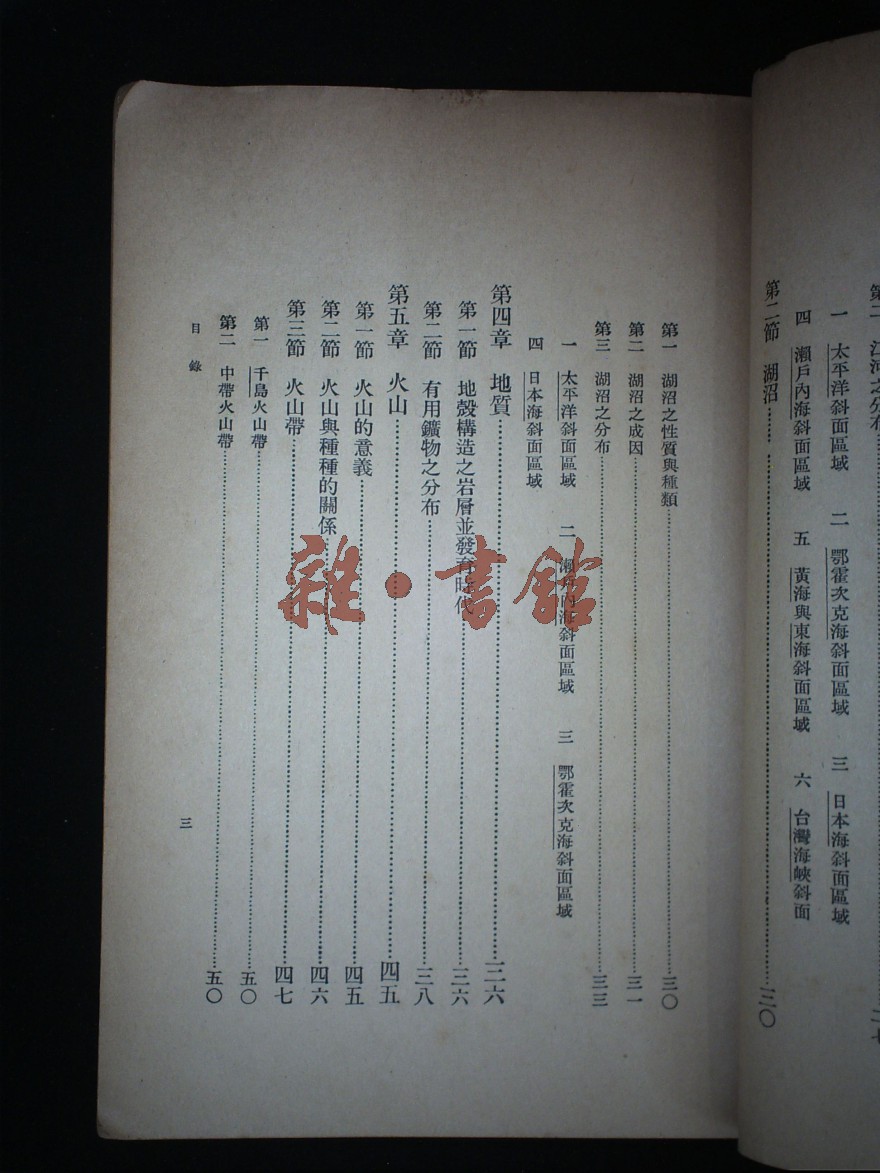 江河之分布
一 太平洋斜面區域 二 鄂霍次克海斜面區域 三 日本海斜面區域
四 瀨戶內海斜面區域 五 黃海與東海斜面區域 六 台灣海峽斜面
第二節 湖沼……三〇
第一 湖沼之性質與種類……三〇
第二 湖沼之成因……三一
第三 湖沼之分布……三三
一 太平洋斜面區域 二 瀨戶內海斜面區域 三 鄂霍次克海斜面區域
四 日本海斜面區域
第四章 地質……三六
第一節 地殼構造之岩層並發育時代……三六
第二節 有用鑛物之分布……三八
第五章 火山……四五
第一節 火山的意義……四五
第二節 火山與種種的關係……四六
第三節 火山帶……四七
第一 千島火山帶……五〇
第二 中帶火山帶……五〇
目錄
三
雜·書館